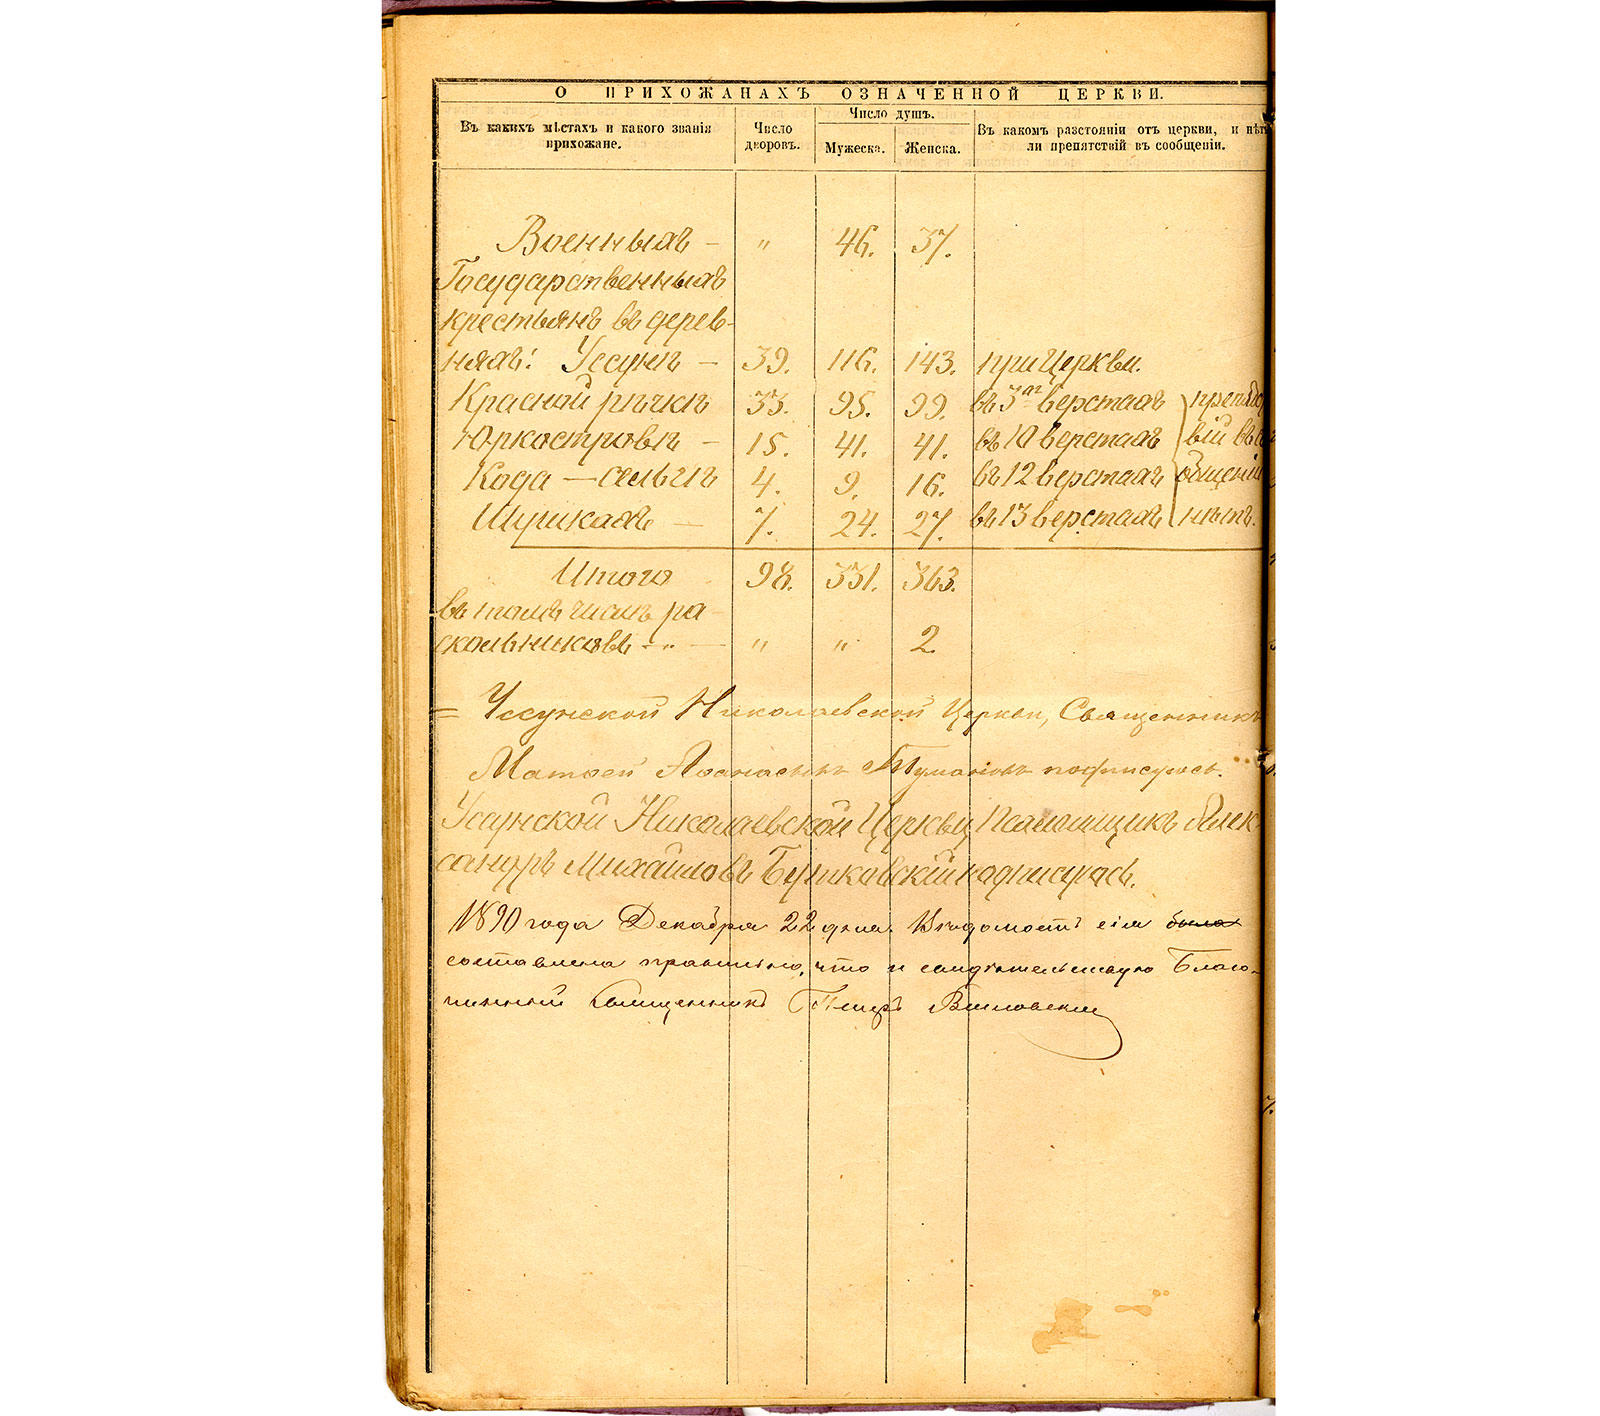 О ПРИХОЖАНАХЪ ОЗНАЧЕННОЙ ЦЕРКВИ.
Въ какихъ мѣстахъ и какого званія прихожане.
Число дворовъ.
Число душъ.
Мужеска.
Женска.
Въ какомъ разстояніи отъ церкви, и нѣтъ
ли препятствій въ сообщеніи.
Военныхъ — " 46. 37.
Государственныхъ
крестьянъ въ дерев-
няхъ: Уссунѣ — 39. 116. 143. при Церкви.
Красной рѣчкѣ 33. 95. 99. въ 3хъ верстахъ препят
Юркостровѣ — 15. 41. 41. въ 10 верстахъ вій въ
Кода — сельгѣ 4. 9. 16. въ 12 верстахъ общеніи
Шушкахъ — 7. 24. 27. въ 13 верстахъ нѣтъ.
Итого 98. 331. 363.
въ томъ числѣ ра-
скольниковъ — " " 2.
= Уссунской Николаевской Церкви, Священникъ
Матѳей Аѳанасьевъ Тумановъ подписуюсь.
Усунской Николаевской Церкви Псаломщикъ Алек-
сандръ Михайловъ подписуюсь.
1890 года Декабря 22 дня. Вѣдомость сія была
составлена правильно, что и свидѣтельствую Благо-
чинный Священникъ Петръ